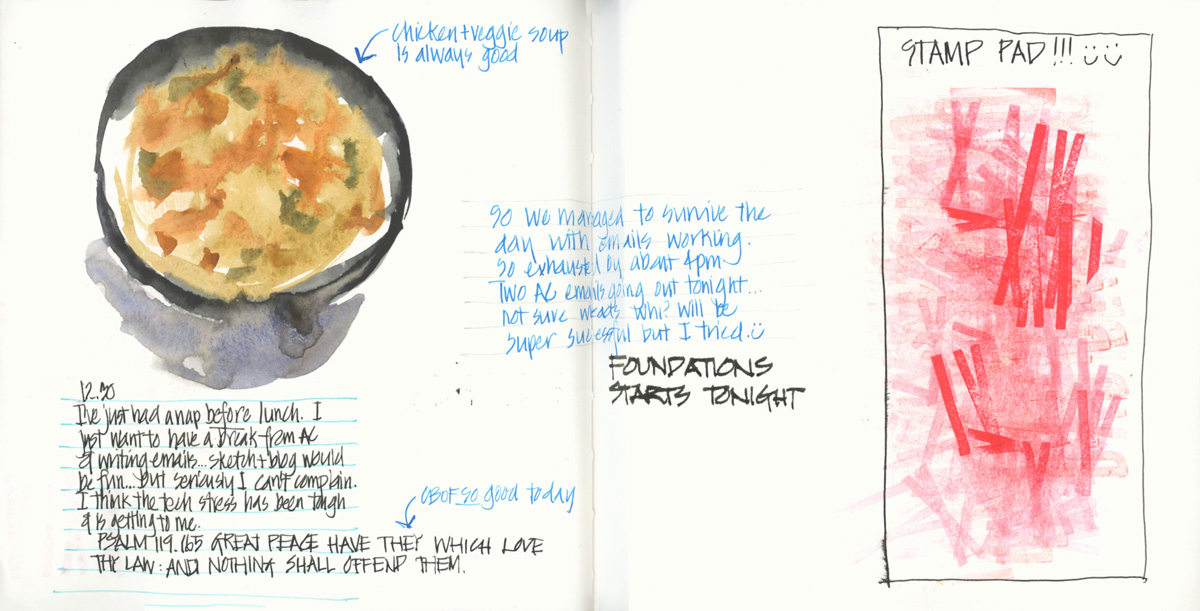 chicken + veggie soup
is always good
12.30
I've just had a nap before lunch. I
just want to have a break from AC
& writing emails... sketch + blog would
be fun... but seriously I can't complain.
I think the tech stress has been tough
& is getting to me.
CBOF SO good today
PSALM 119.165 GREAT PEACE HAVE THEY WHICH LOVE
THY LAW: AND NOTHING SHALL OFFEND THEM.
So we managed to survive the
day with emails working.
So exhausted by about 4pm
Two AC emails going out tonight...
not sure will be
super sucessful but I tried. :)
FOUNDATIONS
STARTS TONIGHT
STAMP PAD!!! :) :)